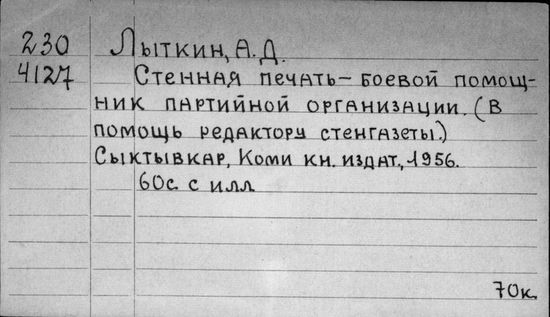 230 Лыткин, А.Д.
4127 Стенная печать – боевой помощ-
ник партийной организации. (В
помощь редактору стенгазеты.)
Сыктывкар, Коми кн. издат., 1956.
60с. с илл
70к.